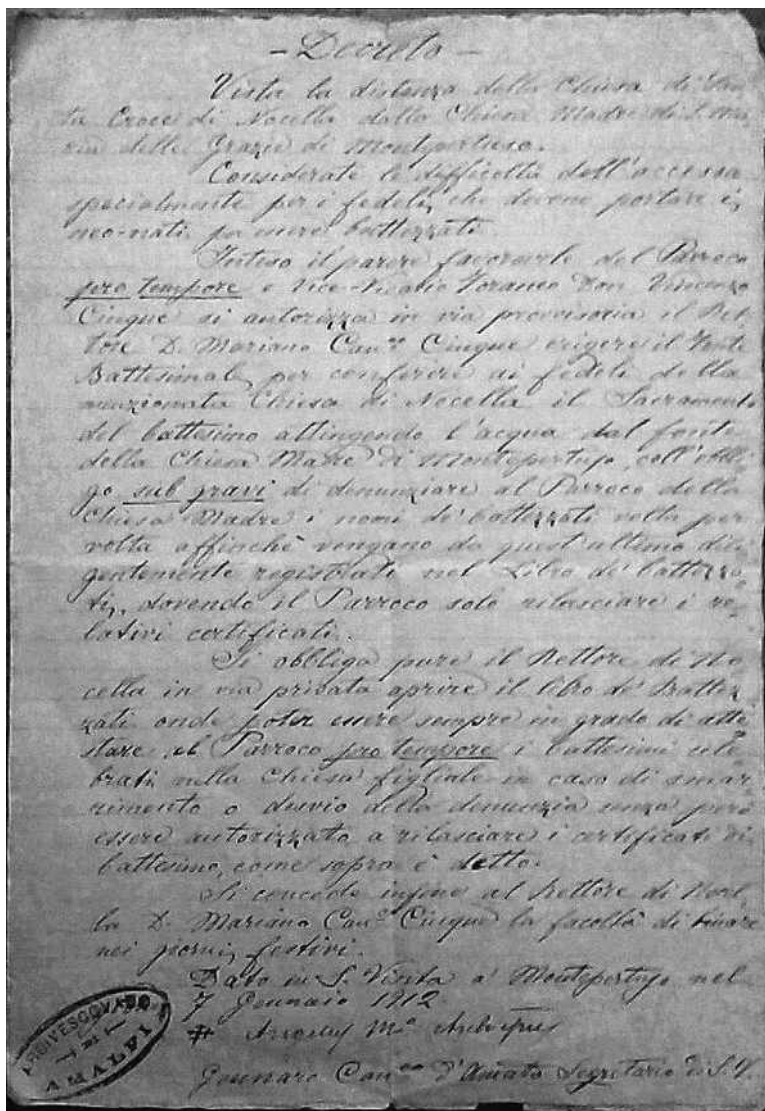 - Decreto -
Vista la distanza della Chiesa di San-
ta Croce di Nocella dalla Chiesa Madre di S. Ma-
ria delle Grazie di Montepertuso.
Considerate le difficoltà dell'accesso
specialmente per i fedeli, che devono portare i
neo-nati per essere battezzati.
Inteso il parere favorevole del Parroco
pro tempore e Vice-Vicario Foraneo Don Vincenzo
Cinque si autorizza in via provvisoria il Ret-
tore D. Mariano Can.co Cinque erigere il Fonte
Battesimale, per conferire ai fedeli della
menzionata Chiesa di Nocella il Sacramento
del battesimo attingendo l'acqua dal fonte
della Chiesa Madre di Montepertuso, coll'obbli-
go sub gravi di denunziare al Parroco della
Chiesa Madre i nomi de' battezzati volta per
volta affinchè vengano da quest'ultimo dili-
gentemente registrati nel Libro de' battezza-
ti, dovendo il Parroco solo rilasciare i re-
lativi certificati.
Si obbliga pure il Rettore di No-
cella in via privata aprire il libro de' Battez-
zati onde poter essere sempre in grado di atte-
stare al Parroco pro tempore i battesimi cele-
brati nella Chiesa figliale in caso di smar-
rimento o disvio della denunzia senza però
essere autorizzato a rilasciare i certificati di
battesimo, come sopra è detto.
Si concede infine al Rettore di Nocel-
la D. Mariano Can.co Cinque la facoltà di binare
nei giorni festivi.
Dato in S. Visita a Montepertuso nel
7 Gennaio 1912
Gennaro Can.co D'Amato Segretario di S. V.
ARCIVESCOVADO
AMALFI